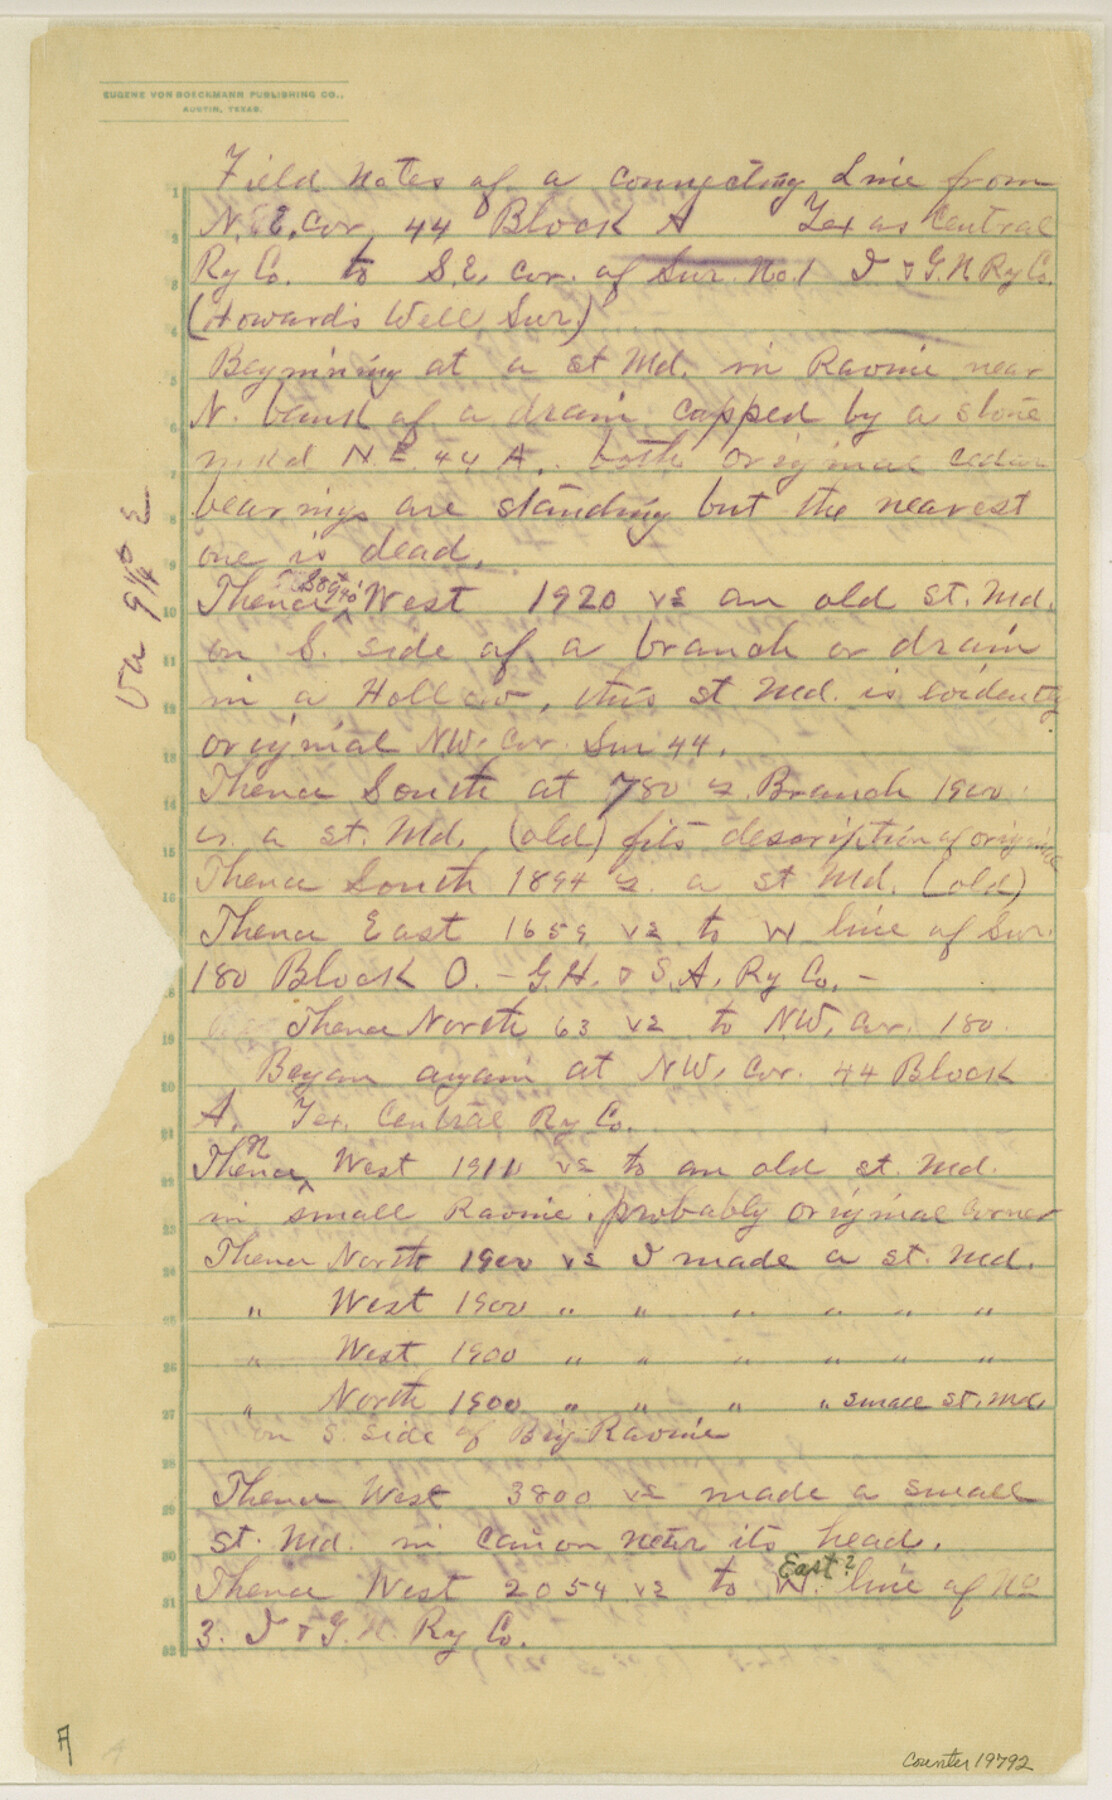 EUGENE VON BOECKMANN PUBLISHING CO.,
AUSTIN, TEXAS.
Field Notes of a connecting Line from
N.E. Cor. 44 Block A Texas Central
Ry Co. to S.E. cor. of Sur. No. 1 I & G. N Ry Co.
(Howards Well Sur.)
Beginning at a st Md. in Ravine near
N. bank of a drain capped by a stone
mkd N.E. 44 A. both original cedar
bearings are standing but the nearest
one is dead.
Thence West 1920 vs an old st. Md.
on S. side of a branch or drain
in a Hollow, this st Md. is evidently
original NW. Cor. Sur 44.
Thence South at 780 vs. Branch 1900
vs. a st. Md. (old) fits description of original
Thence South 1894 vs. a st Md. (old)
Thence East 1659 vs to W line of Sur.
180 Block O. - G.H. & S.A. Ry Co. -
Thence North 63 vs to NW. Cor. 180
Began again at NW. Cor. 44 Block
A. Tex. Central Ry Co.
N
Thence West 1911 vs to an old st. Md.
in small Ravine. probably original corner
Thence North 1900 vs I made a st. Md.
" West 1900 " " " " " "
" West 1900 " " " " " "
" North 1900 " " " " small st. Md.
on S. side of Big Ravine
Thence West 3800 vs made a small
st. Md. in Cañon near its head.
East?
Thence West 2054 vs to W. line of No
3. I & G. N. Ry Co.
Va 9 1/4° E
A
Counter 19792